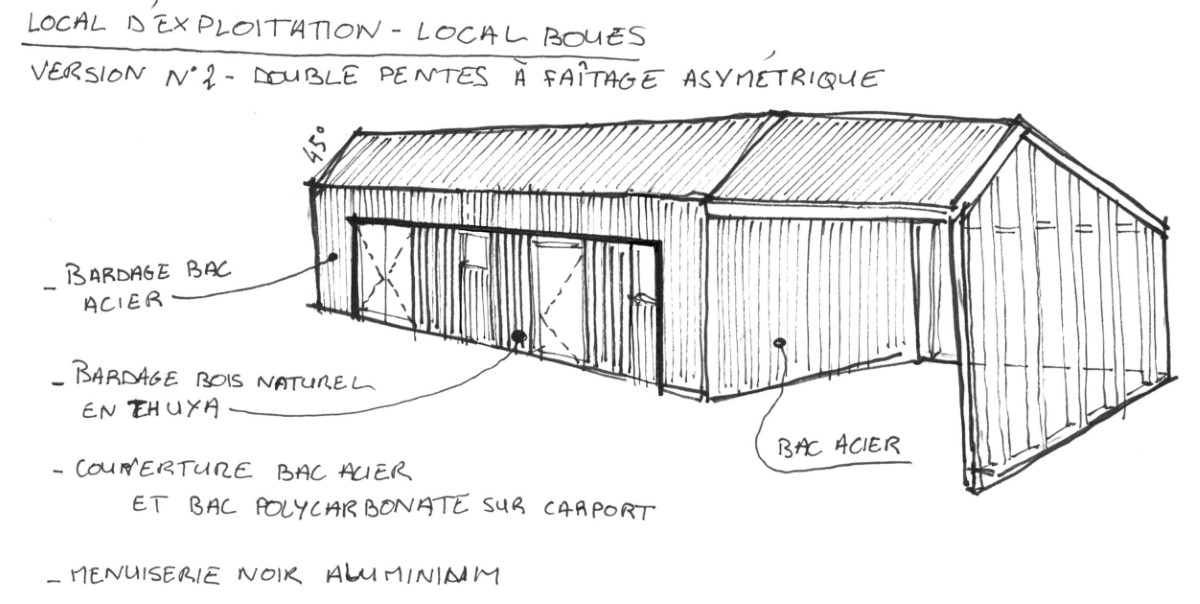 LOCAL D'EXPLOITATION - LOCAL BOUES
VERSION N°2 - DOUBLE PENTES À FAÎTAGE ASYMÉTRIQUE
45°
- BARDAGE BAC
ACIER
- BARDAGE BOIS NATUREL
EN THUYA
BAC ACIER
- COUVERTURE BAC ACIER
ET BAC POLYCARBONATE SUR CARPORT
- MENUISERIE NOIR ALUMINIUM